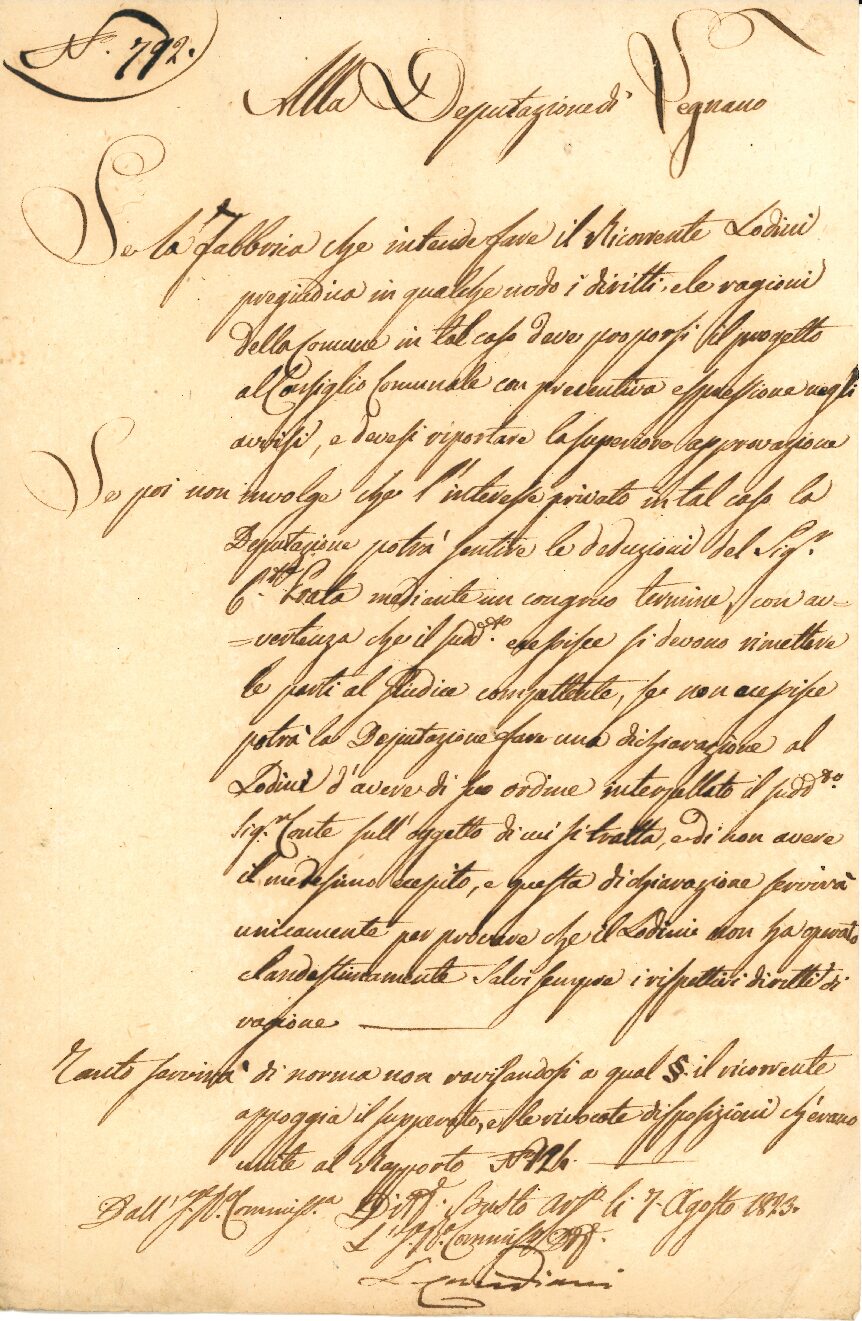 N. 792.
Alla Deputazione di Legnano
Se la Fabbrica che intende fare il Ricorrente Lodini
pregiudica in qualche modo i diritti, e le ragioni
della Comune in tal caso deve proporsi il progetto
al Consiglio Comunale con preventiva espressione negli
avvisi, e devesi riportare la superiore approvazione
Se poi non involge che l'interesse privato in tal caso la
Deputazione potrà sentire le deduzioni del Sig.r
C.te Prata mediante un congruo termine, con av=
=vertenza che il sudd.to eccepisce si devono rimettere
le parti al Giudice compettente, se non eccepisce
potrà la Deputazione fare una dichiarazione al
Lodini d'avere di suo ordine interpellato il sudd.to
Sig.r Conte sull'oggetto di cui si tratta, e di non avere
il medesimo eccepito, e questa dichiarazione servirà
unicamente per provare che il Lodini non ha operato
clandestinamente salvi sempre i rispettivi diritti di
ragione
Tanto servirà di norma non ravisandosi a qual §. il ricorrente
appoggia il supperato, e le rivocate disposizioni ch'erano
unite al Rapporto N.
Dall'I. R. Commiss.a Dist.e Busto Ars.o li 7. Agosto 1823.
L'I. R. Commiss. Dist.